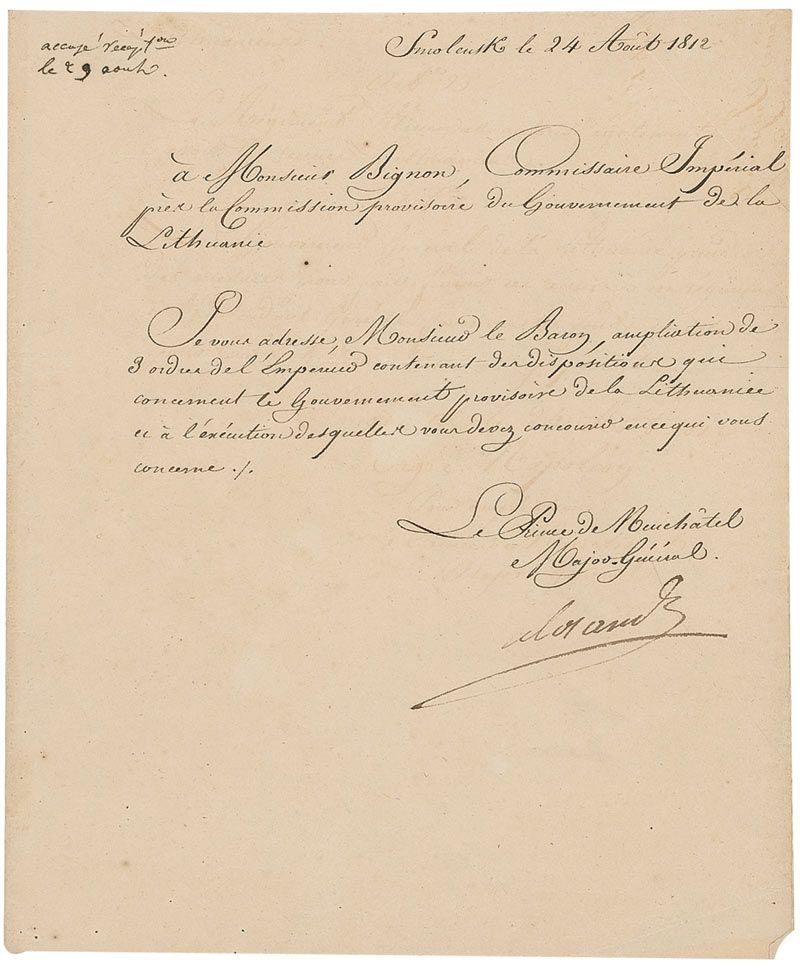 accusé récépt^on
le 29 août.
Smolensk le 24 Août 1812
à Monsieur Bignon, Commissaire Impérial
près la Commission provisoire du Gouvernement de la
Lithuanie
Je vous adresse, Monsieur le Baron, ampliation de
3 ordres de l'Empereur contenant des dispositions qui
concernent le Gouvernement provisoire de la Lithuaniee
et à l'exécution desquelles vous devez concourir en ce qui vous
concerne ./.
Le Prince de Neuchâtel
Major-Général.
Alexandre